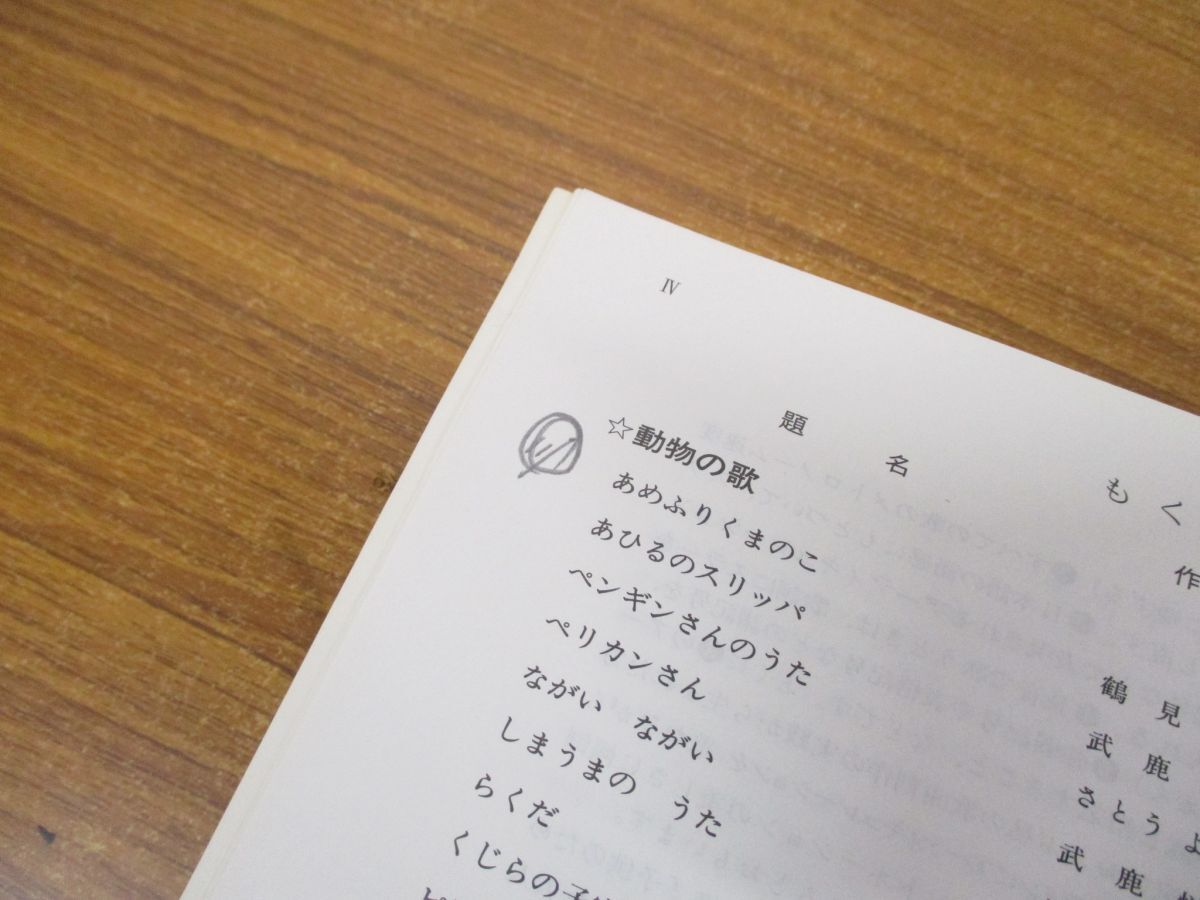 Ⅳ
もく
題名
作
☆動物の歌
あめふりくまのこ
鶴見
あひるのスリッパ
武鹿
ペンギンさんのうた
さとうよ
ペリカンさん
武鹿
ながい ながい
しまうまの うた
らくだ
くじらの子